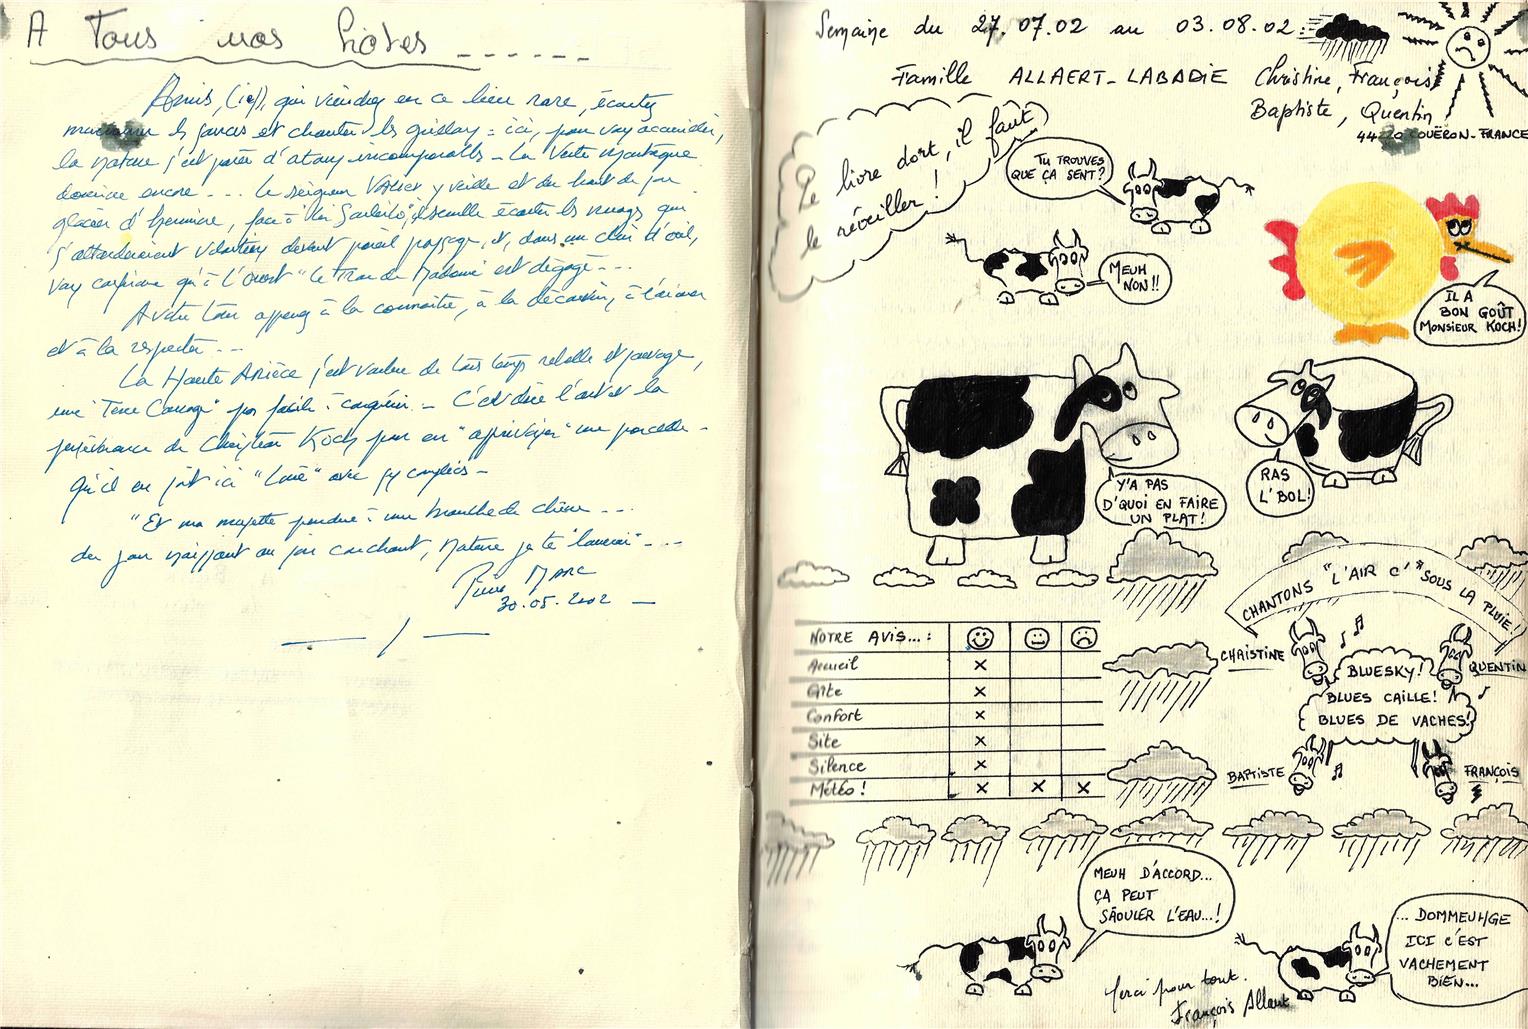 A Tous nos hôtes ------
Amis, (ies), qui viendrez en ce lieu rare, écoutez
les sources et chanter les grillons : ici, pour vous accueillir,
la nature s'est parée d'atours incomparables - La Verte Montagne
domine encore ... Le seigneur Valier y veille et du haut de son
glacier d'hermine, face à il semble écouter les nuages qui
s'attarderaient volontiers devant pareil paysage, et, dans un clin d'oeil,
vous confirme qu'à l'ouest "le Trou de Madame" est dégagé ...
A votre tour apprenez à la connaître, à la découvrir, à l'aimer
et à la respecter ...
La Haute Ariège s'est voulue de tous temps rebelle et sauvage,
une "Terre Courage" pas facile à conquérir - C'est dire l'art et la
persévérance de Christian Koch pour en "apprivoiser" une parcelle -
Qu'il en soit ici "Loué" avec sy complices -
"Et ma musette pendue à une branche de chêne ...
du jour naissant au jour couchant, Nature je te "louerai" ...
Pierre MARC
30.05.2002 -
Semaine du 27.07.02 au 03.08.02 :
Famille ALLAERT-LABADIE Christine, François,
Baptiste, Quentin
COUËRON-FRANCE
Ce livre dort, il faut
le réveiller !
TU TROUVES
QUE ÇA SENT?
MEUH
NON!!
IL A
BON GOÛT
MONSIEUR KOCH!
Y'A PAS
D'QUOI EN FAIRE
UN PLAT!
RAS
L'BOL!
CHANTONS "L'AIR C'" SOUS LA PLUIE!
NOTRE AVIS...:
Accueil X
Gîte X
Confort X
Site X
Silence X
Météo ! X X X
CHRISTINE
QUENTIN
BLUESKY!
BLUES CAILLE!
BLUES DE VACHES!
BAPTISTE
FRANÇOIS
MEUH D'ACCORD...
ÇA PEUT
SÂOULER L'EAU...!
... DOMMEUH/GE
ICI C'EST
VACHEMENT
BIEN...
Merci pour tout.
François Allaert